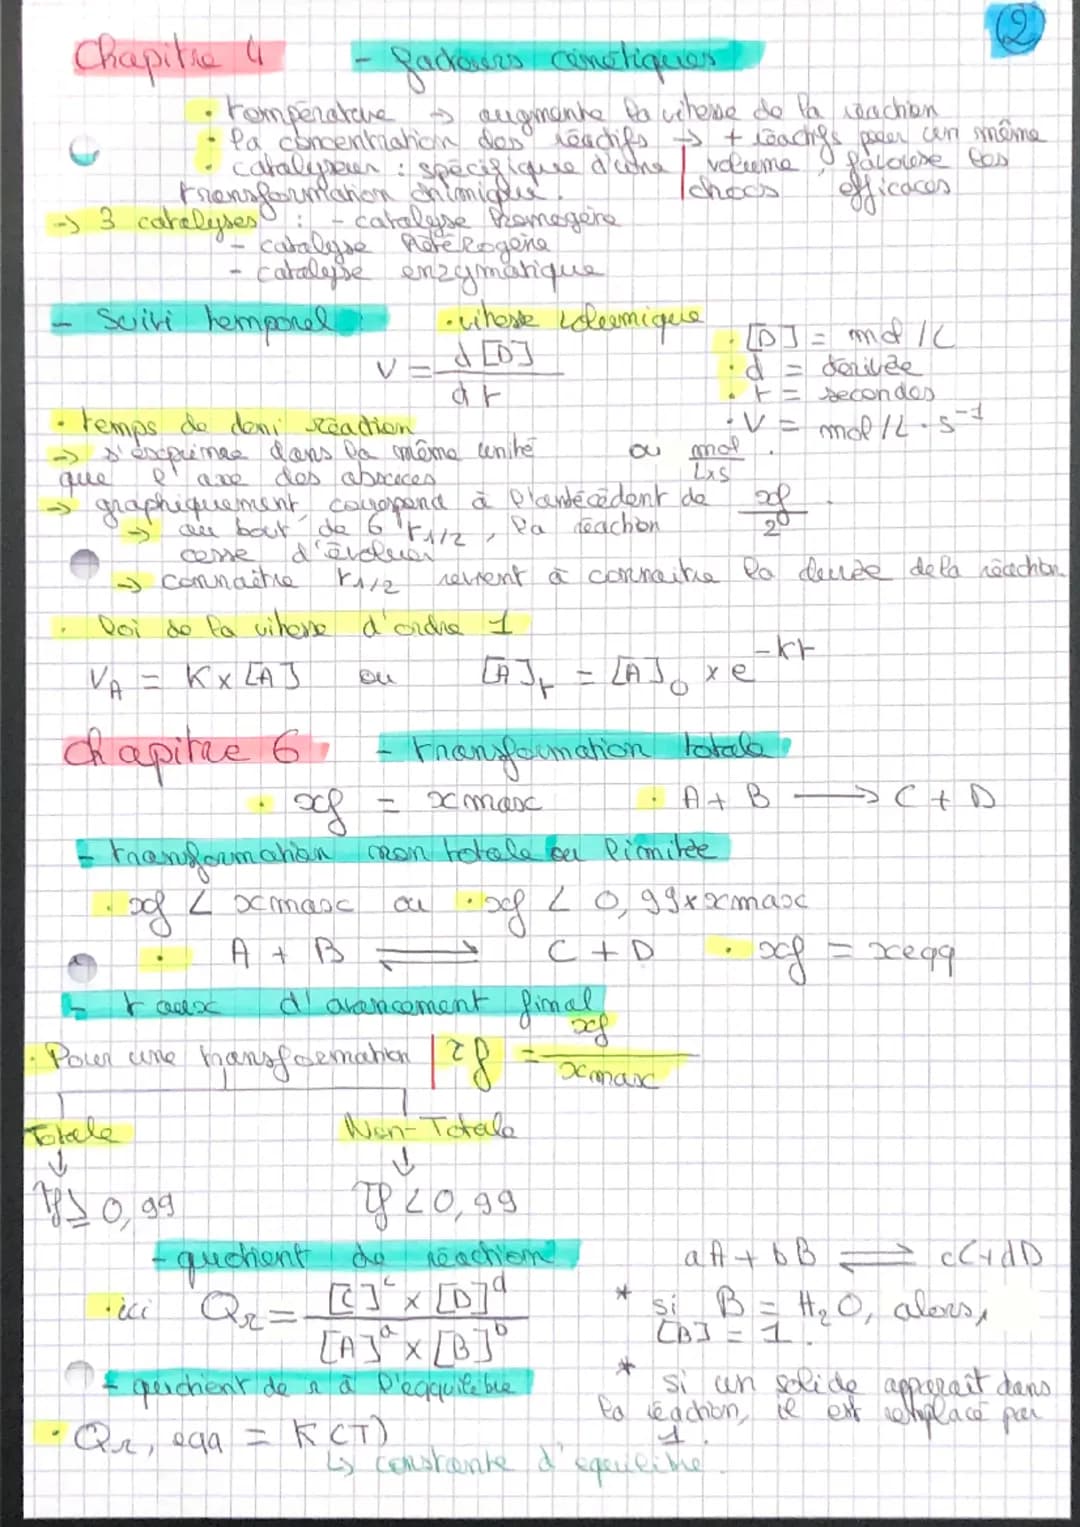 2
Chapitre 4 - facteurs cinétiques
• température → augmente la vitesse de la réaction
• la concentration des réactifs → + réactifs pour un même
• catalyseur : spécifique d'une | volume, favorise les
transformation chimique. | chocs efficaces
→ 3 catalyses : - catalyse homogène
- catalyse hétérogène
- catalyse enzymatique
- Suivi temporel : • vitesse volumique
V = d[D] / dt
• [D] = mol/L
• d = dérivée
• t = secondes
• V = mol/L.s⁻¹
ou mol / L×s .
• temps de demi réaction
→ s'exprime dans la même unité
que l'axe des abscices
→ graphiquement, correspond à l'antécédent de xf / 2
→ au bout de 6 t1/2, la réaction
cesse d'évoluer
→ connaître t1/2 revient à connaitre la durée de la réaction
• Loi de la vitesse d'ordre 1
VA = K × [A] ou [A]t = [A]0 × e^-kt
Chapitre 6 - transformation totale
• xf = xmax • A + B → C + D
- transformation non totale ou limitée
• xf < xmax ou • xf < 0,99×xmax
• A + B ⇌ C + D • xf = xeqq
- taux d'avancement final
• Pour une transformation | τf = xf / xmax
Totale Non-Totale
↓ ↓
τf ≥ 0,99 τf < 0,99
- quotient de réaction aA + bB ⇌ cC+dD
• ici Qr = [C]^c × [D]^d / [A]^a × [B]^b
* si B = H₂O, alors,
[B] = 1.
- quotient de r à l'eqquilibre
* si un solide apparait dans
la réaction, il est remplacé par
1.
• Qr, eqq = K(T)
↳ constante d'équilibre.